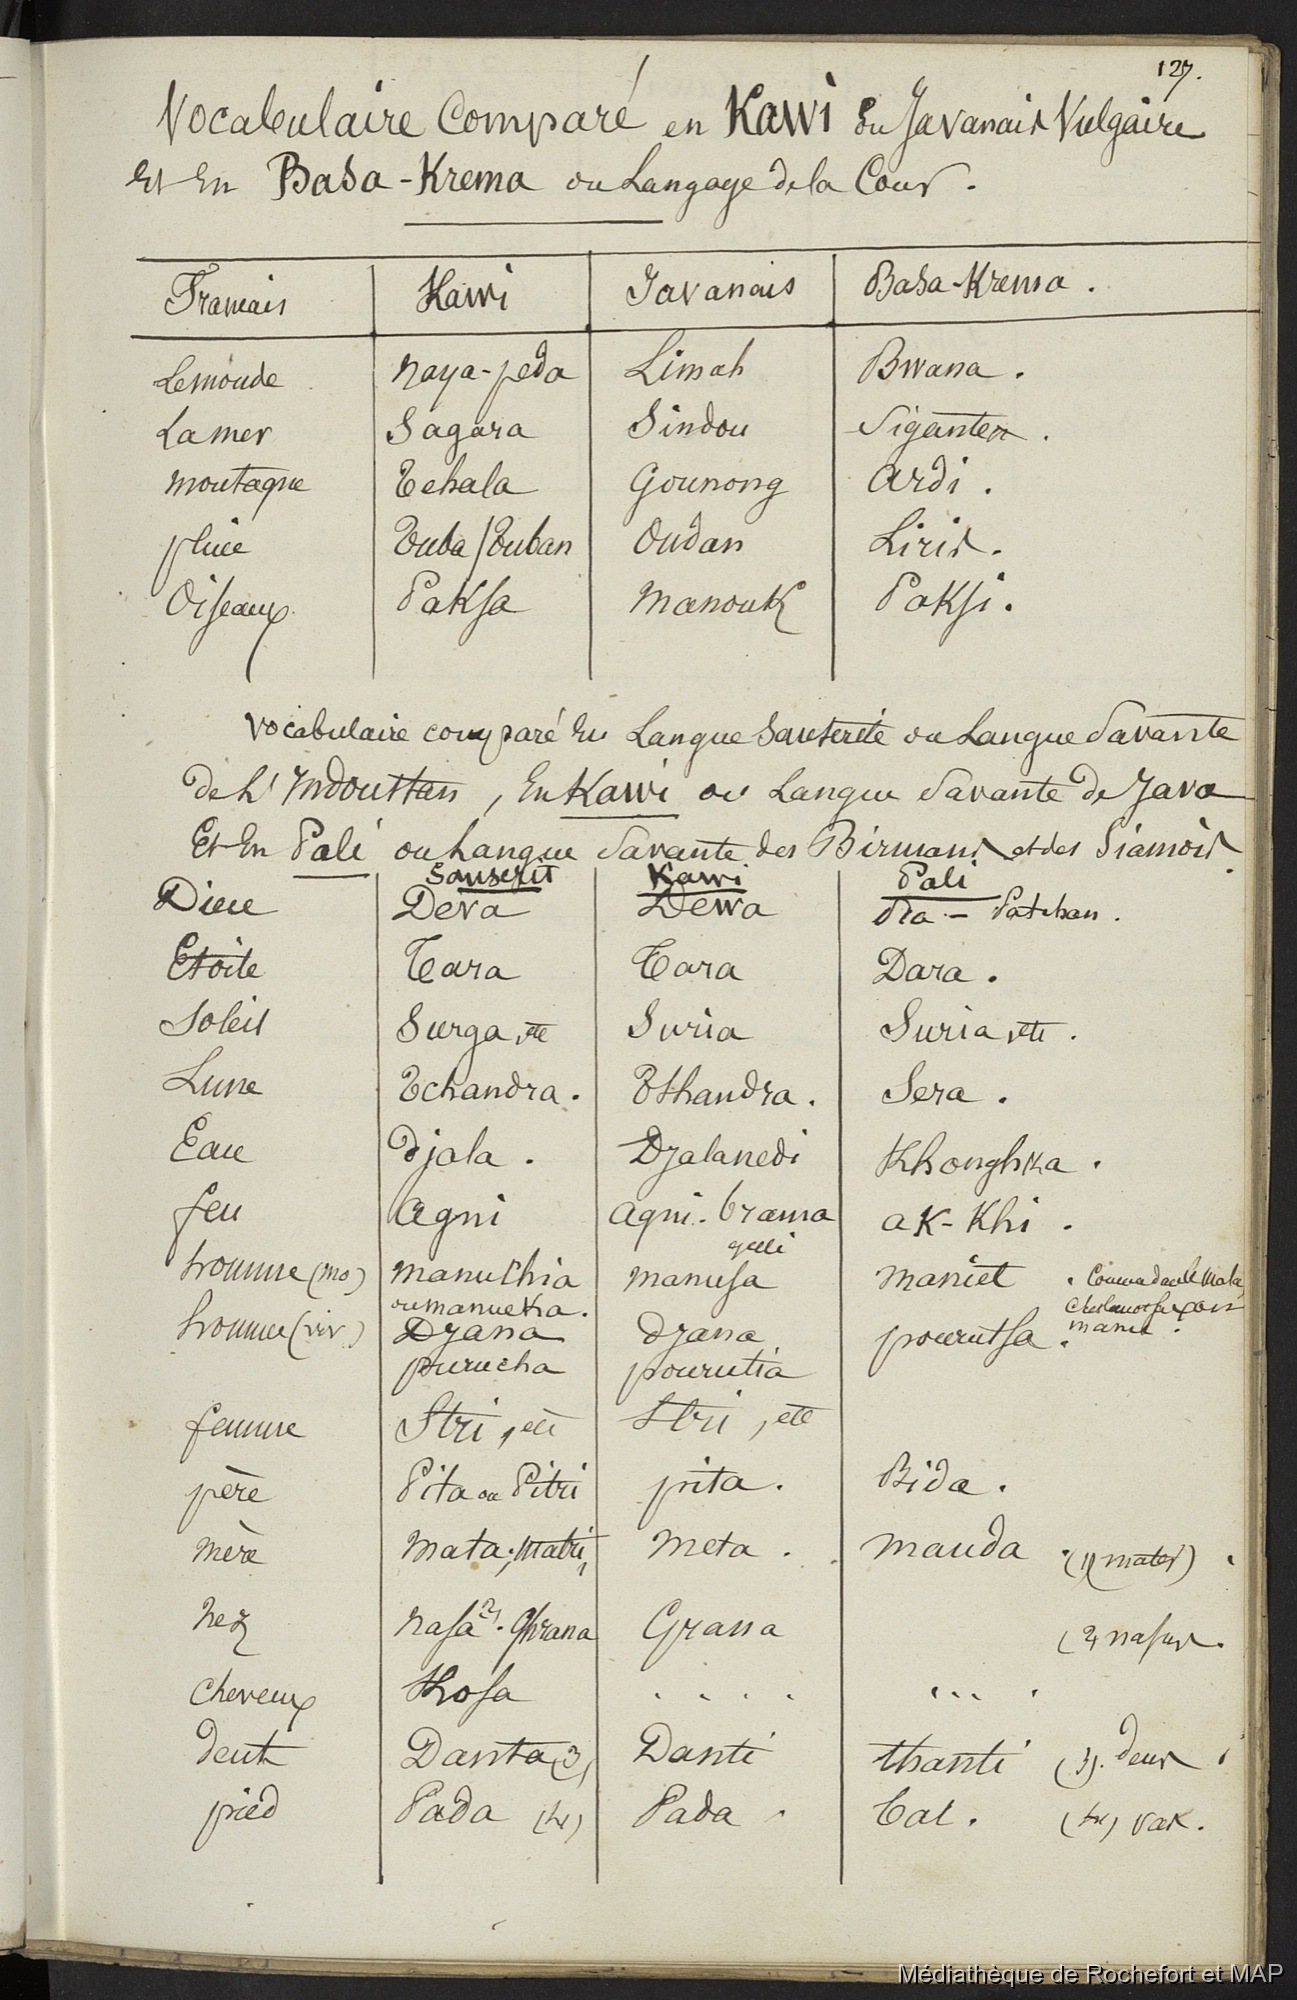 127.
Vocabulaire Comparé en Kawi ou Javanais Vulgaire
Et En Basa-Krema ou Langage de la Cour.
Français Kawi Javanais Basa-Krema.
Le monde Naya-peda Limah Bwana.
La mer Sagara Sindou Siganten.
montagne Tchala Gounong Ardi.
pluie Tuba/Tuban Oudan Liris.
Oiseaux Paksa Manouk Paksi.
Vocabulaire comparé En Langue Sanscrite ou Langue Savante
de L'Indoustan, En Kawi ou Langue Savante de Java
Et En Pali ou Langue Savante des Birmans et des Siamois.
Sanscrit Kawi Pali
Dieu Deva Dewa Pra - Patchan.
Etoile Tara Tara Dara.
Soleil Surga, etc Suria Suria, etc.
Lune Tchandra. Tthandra. Sera.
Eau djala. Djalanedi Khongkka.
feu Agni Agni. brama ak-Khi.
geni
homme (mo) manuchia manusa maniet . Comme dans le Mala
ou manucha. manus.
homme (vir) Dzana dzana pourutsa.
purucha pourutia
femme Stri, etc Stri, etc
père Pita ou Pitri pita. Bida.
mère Mata, matri, Meta. Mauda . (1) (mater).
Nez Nasa (2). Ghrana Grana (2) nasus.
Cheveux Kosa . . . . . . . .
dent Danta (3) Danti thanti (3). dens.
pied Pada (4) Pada. Bat. (4) pas.
Médiathèque de Rochefort et MAP